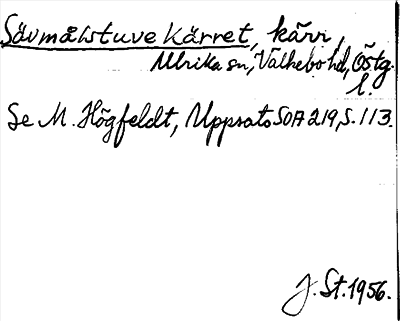 Sävmålstuve Kärret, kärr,
Ulrika sn, Valkebo hd, Östg.
l.
Se M. Högfeldt, Uppsats SOA 219, s. 113.
J. St. 1956.